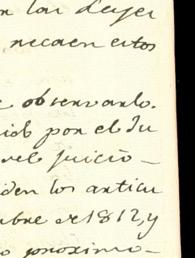 n las Leyes
recaen estos
observarlo.
cidos por el Ju
el juicio_
iden los articu
ubre de 1812, y
o proximo_